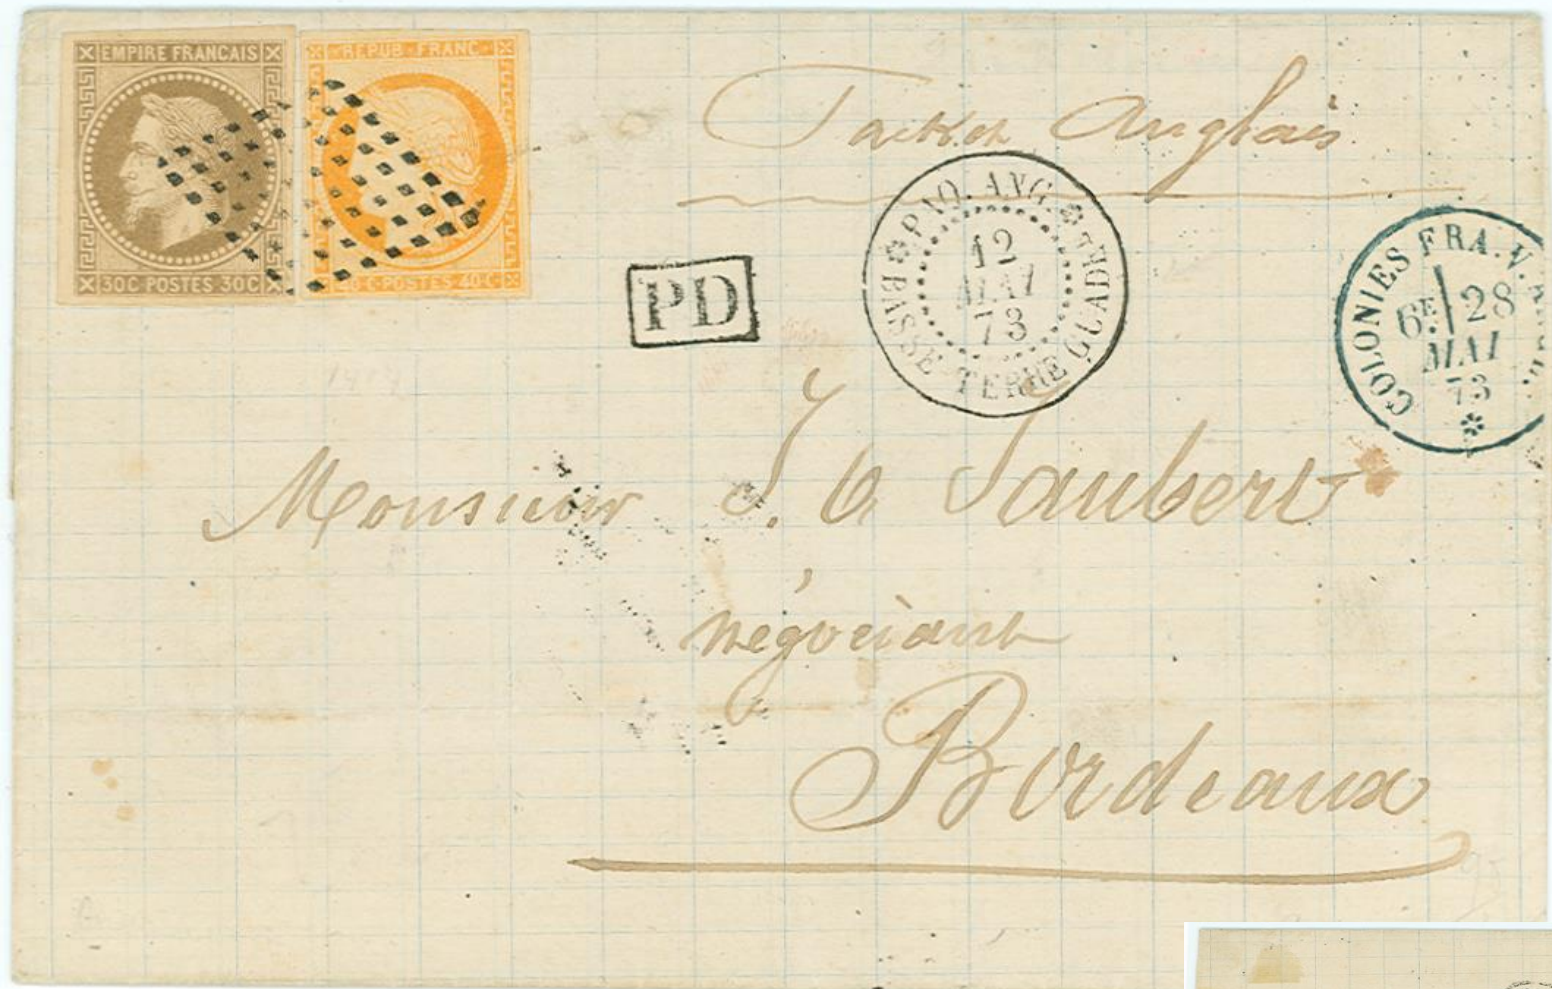 EMPIRE FRANÇAIS
30C POSTES 30C
REPUB FRANC
40 C POSTES 40 C
Packet Anglais
PAQ. ANG. GUADEL
12
MAI
73
BASSE-TERRE
PD
COLONIES FRA. V.
6E 28
MAI
73
Monsieur J. G. Jaubert
négociant
Bordeaux